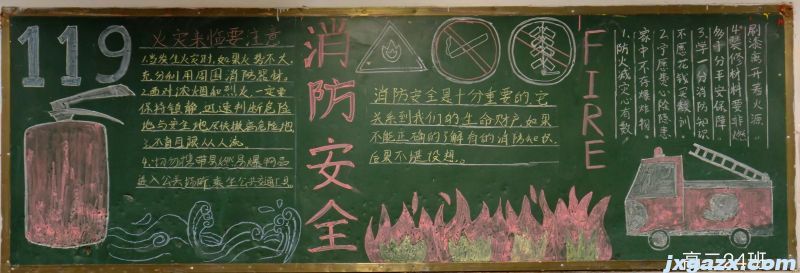 119
火灾来临要注意
1.当发生火灾时,如果火势不大,
充分利用周围消防器材。
2.面对浓烟和烈火,一定要
保持镇静,迅速判断危险
地与安全地,尽快撤离危险地
3.不盲目跟从人流。
4.切勿携带易燃易爆物品
进入公共场所乘坐公共交通工具
消防安全
消防安全是十分重要的,它
关系到我们的生命财产,如果
不能正确的了解有的消防知识,
后果不堪设想。
FIRE
刷漆离开秀火源
4.装修材料要非燃
多一分平安保障
3.学一分消防知识
不愿花钱买教训
2.宁愿费心除隐患
容中不存爆炸物
1.防火减灾心有数
高二24班
jxgazx.com